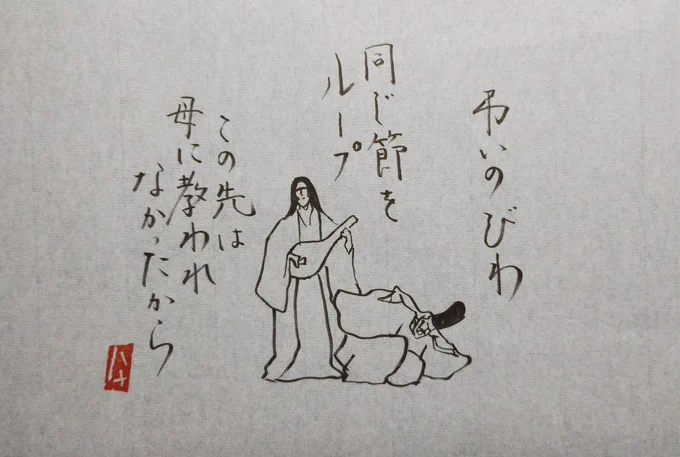 弔いのびわ
同じ節を
ループ
この先は
母に教われ
なかったから